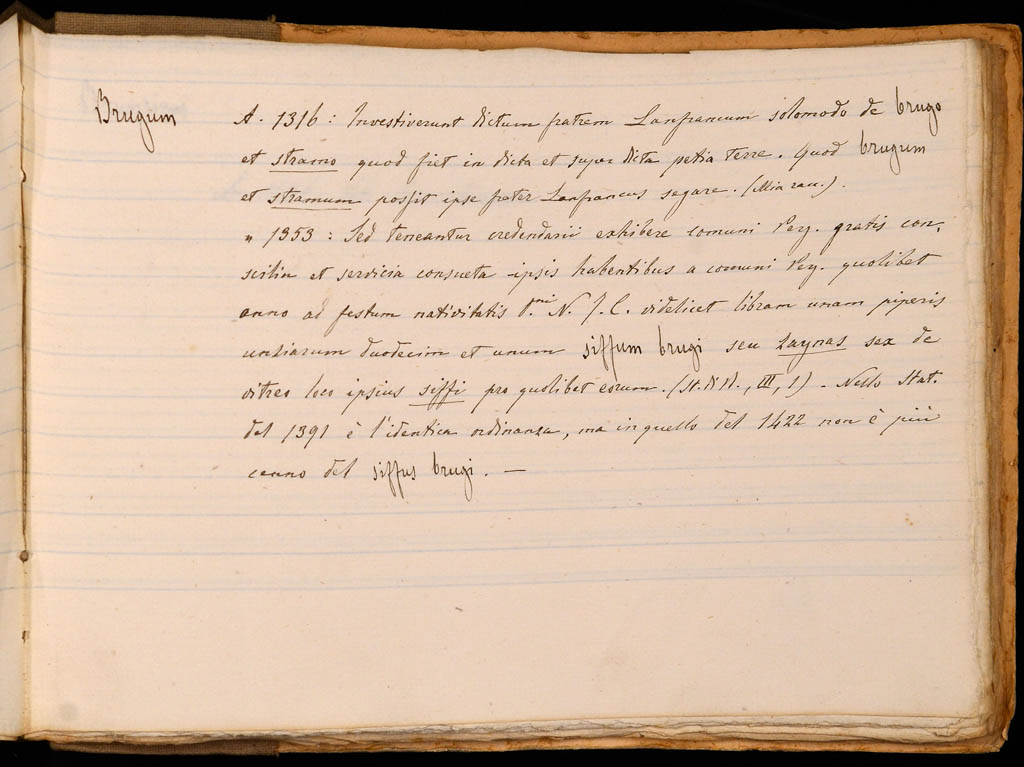 Brugum
A. 1316: Investiverunt dictum fratrem Lanfrancum solomodo de brugo
et stramo quod fiet in dicta et super dicta petia terre. Quod brugum
et stramum possit ipse frater Lanfrancus segare. (Min rau.).
" 1353: Sed teneantur credendarii exhibere comuni Pey. gratis con-
scilia et servicia consueta ipsis habentibus a comuni Pey. quolibet
anno ad festum nativitatis d.ni N. J. C. videlicet libram unam piperis
unziarum duodecim et unum siffum brugi seu zaynas sex de
vitreo loco ipsius siffi pro quolibet eorum. (St. di D., III, 1) - Nello Stat.
del 1391 è l'identica ordinanza, ma in quello del 1422 non è più
cenno del siffus brugi. —